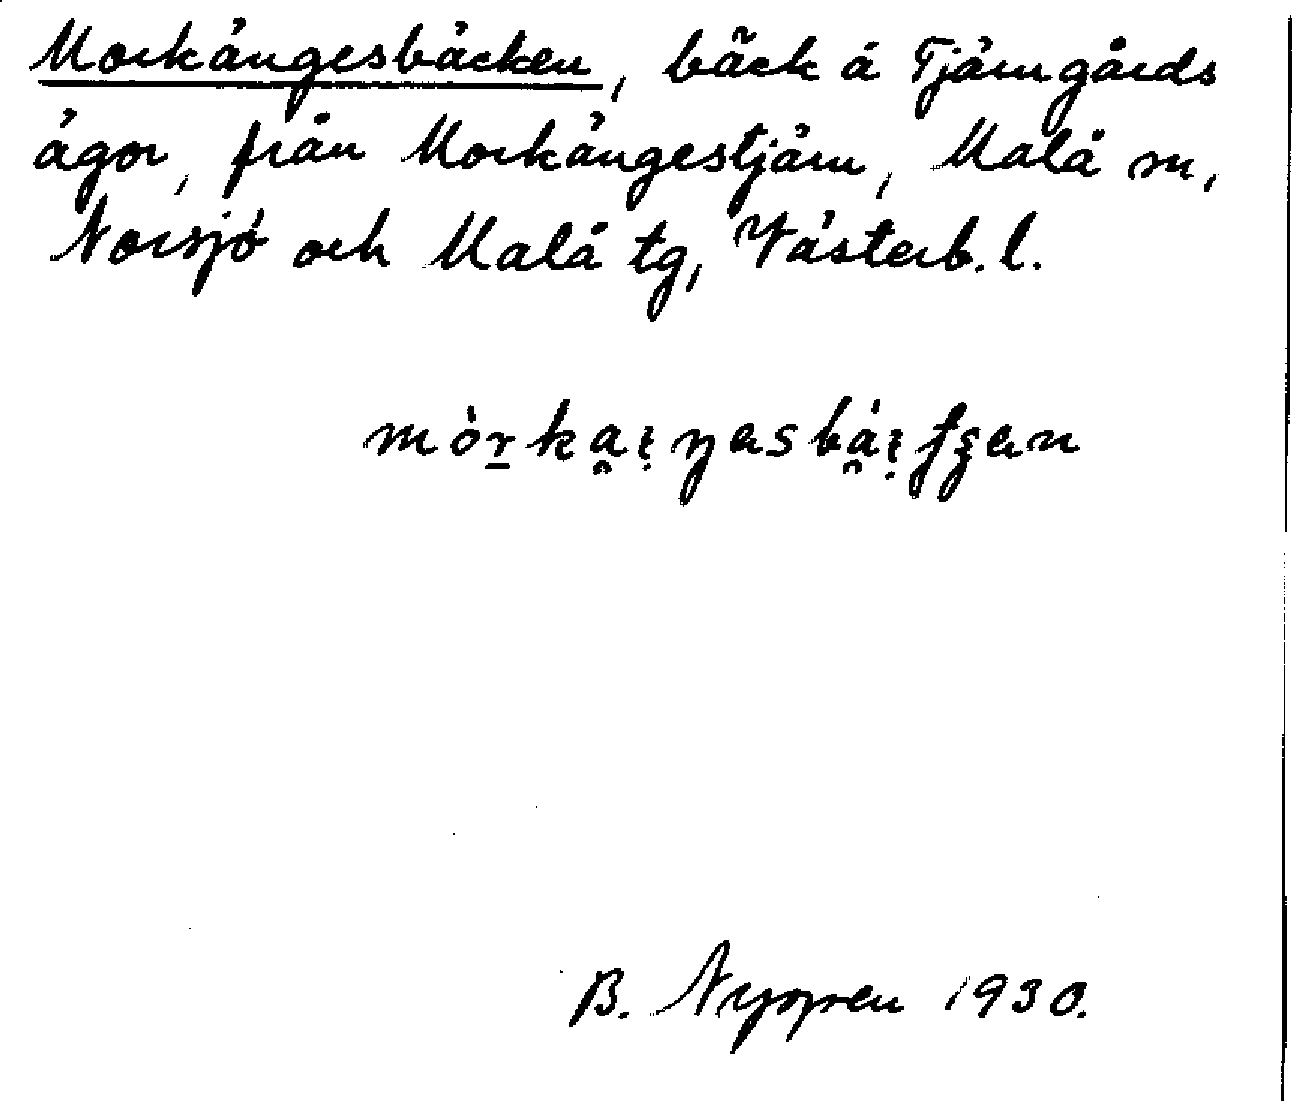 Morkängesbäcken, bäck å Tjärngårds
ägor, från Morkängestjärn, Malå sn,
Norsjö och Malå tg, Västerb. l.
B. Nygren 1930.